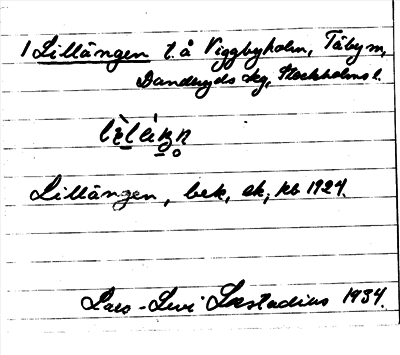 1 Lillängen t. å Viggbyholm, Täby sn,
Danderyds skg, Stockholms l.
Lillängen, bek, ek, kb 1924.
Lars-Levi Læstadius 1934.